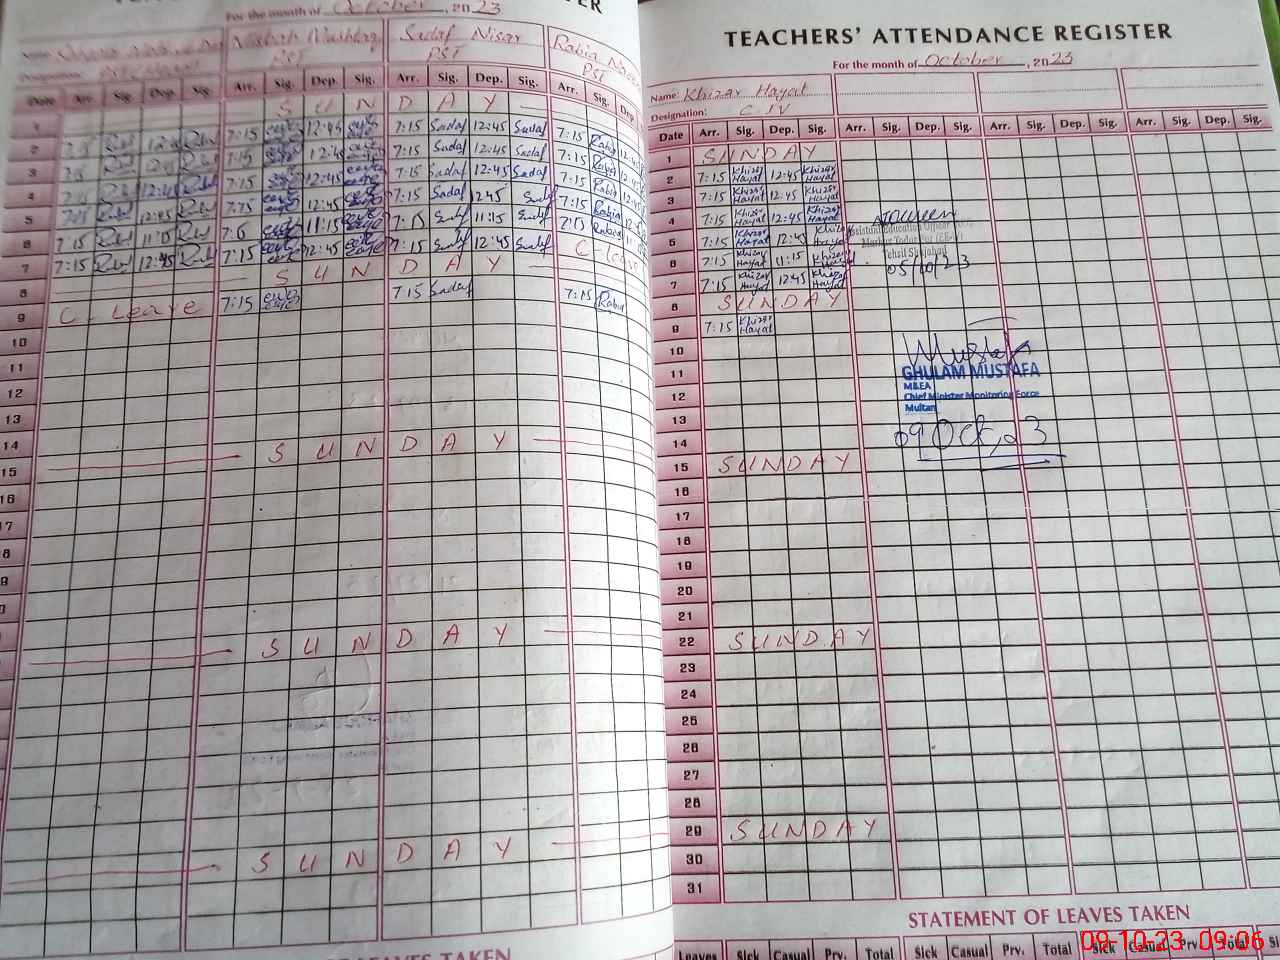 For the month of October, 2023
Name: Misbah Mushtaq Sadaf Nisar Rabia
PST PST PST
Date Arr. Sig. Dep. Sig. Arr. Sig. Dep. Sig. Arr. Sig. Dep. Sig. Arr. Sig. Dep.
1 SUNDAY
2 7:15 12:45 7:15 Sadaf 12:45 Sadaf 7:15 Rabia 12:45
3 7:15 12:45 7:15 Sadaf 12:45 Sadaf 7:15 Rabia 12:45
4 7:15 12:45 7:15 Sadaf 12:45 Sadaf 7:15 Rabia 12:45
5 7:15 12:45 7:15 12:45 7:15 Sadaf 12:45 Sadaf 7:15 Rabia
6 7:15 11:15 7:15 11:15 7:15 Sadaf 11:15 Sadaf 7:15 Rabia
7 7:15 12:45 7:15 12:45 7:15 Sadaf 12:45 Sadaf C- leave
8 SUNDAY
9 C. Leave 7:15 7:15 Sadaf 7:15 Rabia
10
11
12
13
14
15 SUNDAY
16
17
SUNDAY
SUNDAY
TEACHERS' ATTENDANCE REGISTER
For the month of October, 2023
Name: Khizar Hayat
Designation: C.IV
Date Arr. Sig. Dep. Sig. Arr. Sig. Dep. Sig. Arr. Sig. Dep. Sig. Arr. Sig. Dep. Sig.
1 SUNDAY
2 7:15 Khizar Hayat 12:45 Khizar Hayat
3 7:15 Khizar Hayat 12:45 Khizar Hayat
4 7:15 Khizar Hayat 12:45 Khizar Hayat
5 7:15 Khizar Hayat 12:45 Khizar Hayat
6 7:15 Khizar Hayat 11:15 Khizar Hayat
7 7:15 Khizar Hayat 12:45 Khizar Hayat
8 SUNDAY
9 7:15 Khizar Hayat
Assistant Education Officer
Tehsil Shujabad
05/10/23
10
11
12
13
14
15 SUNDAY
GHULAM MUSTAFA
M&EA
Chief Minister Monitoring Force
Multan
09 Oct, 23
16
17
18
19
20
21
22 SUNDAY
23
24
25
26
27
28
29 SUNDAY
30
31
STATEMENT OF LEAVES TAKEN
Leaves Sick Casual Prv. Total Sick Casual Prv. Total
09-10-23 09:06